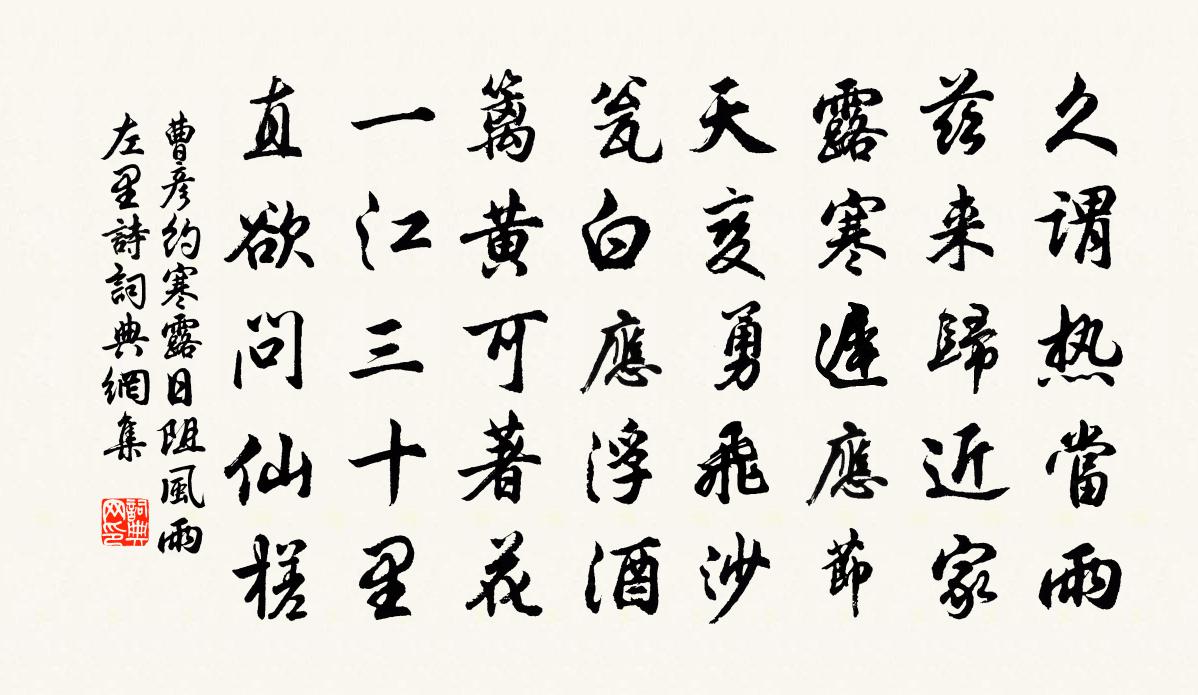 久谓热當雨
兹来歸近家
露寒遲應節
天变勇飛沙
瓮白應浮酒
籬黄可著花
一江三十里
直欲问仙槎
曹彦约寒露日阻風雨
左里詩詞典網集
詞典网印